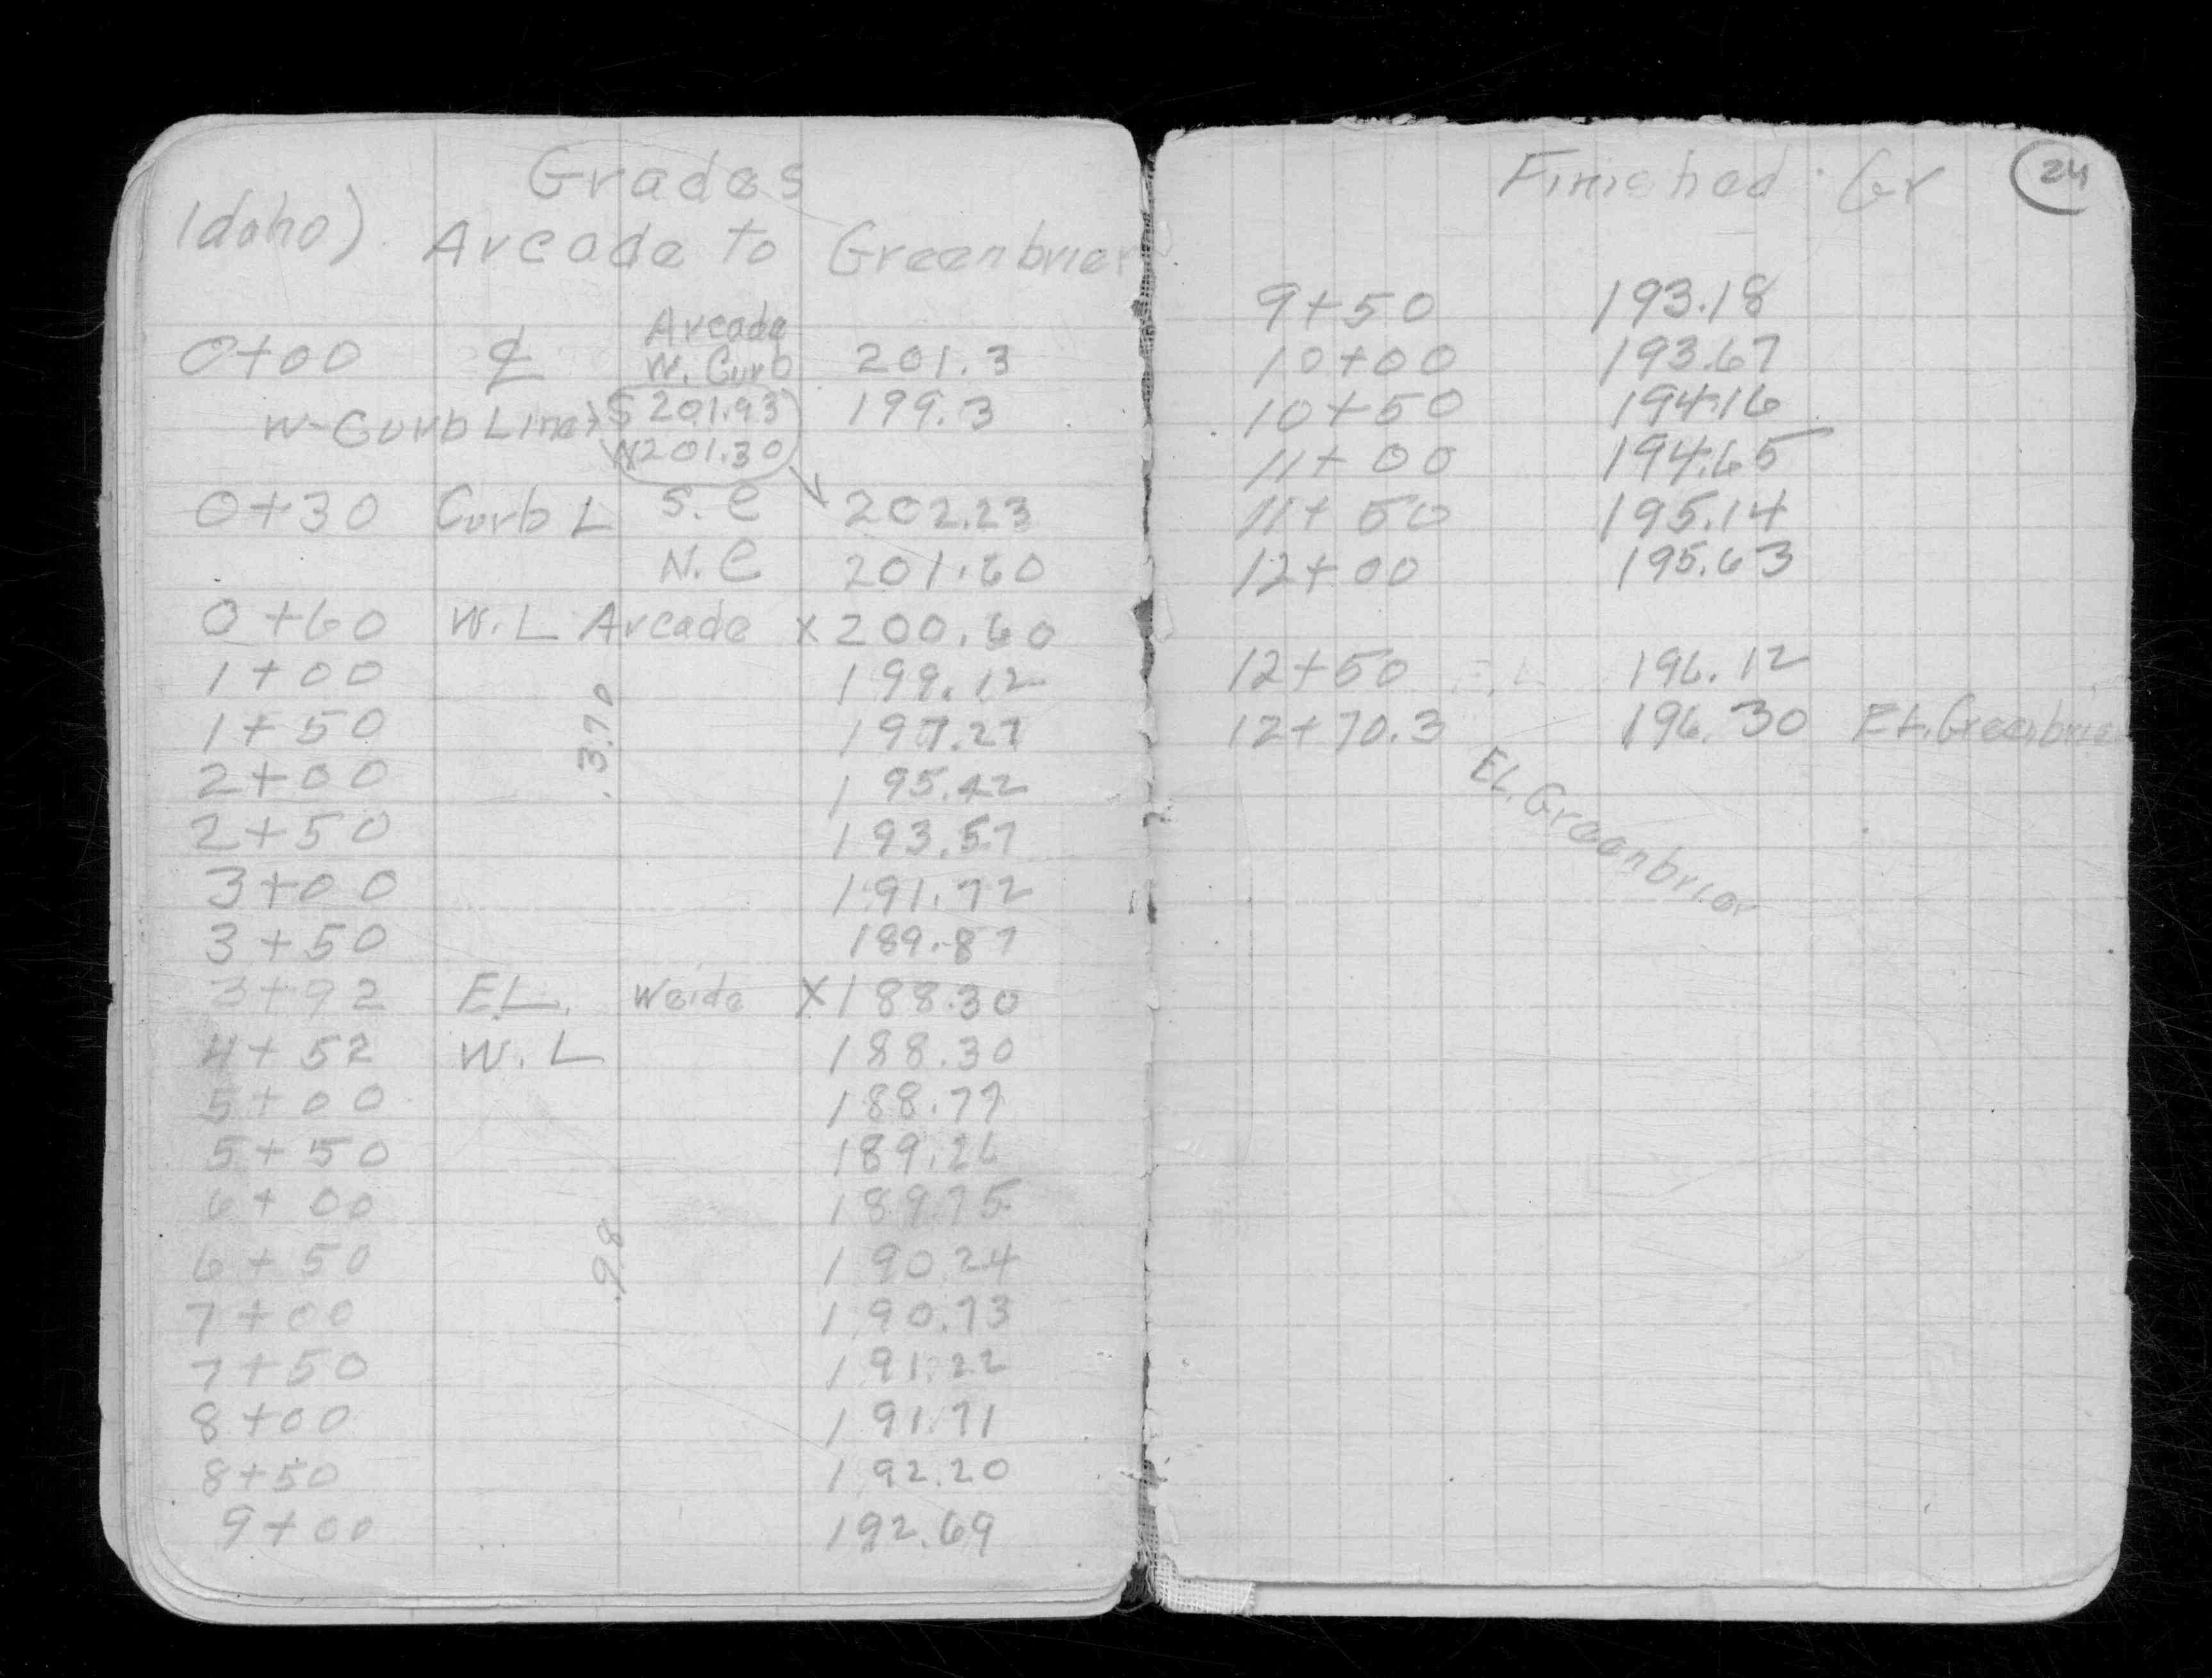 Grades
Idaho) Arcade to Greenbrier
Arcade
0+00 ℄ W. Curb 201.3
W-Curb Line S 201.93 199.3
N 201.30
0+30 Curb L S.C 202.23
N.C 201.60
0+60 W.L Arcade x 200.60
1+00 199.12
1+50 197.27
3.70
2+00 195.42
2+50 193.57
3+00 191.72
3+50 189.87
3+92 EL. Weide x 188.30
4+52 W.L 188.30
5+00 188.77
5+50 189.26
6+00 189.75
6+50 190.24
.98
7+00 190.73
7+50 191.22
8+00 191.71
8+50 192.20
9+00 192.69
Finished Gr 24
9+50 193.18
10+00 193.67
10+50 194.16
11+00 194.65
11+50 195.14
12+00 195.63
12+50 E.L 196.12
12+70.3 196.30 EL.Greenbrier
EL. Greenbrier